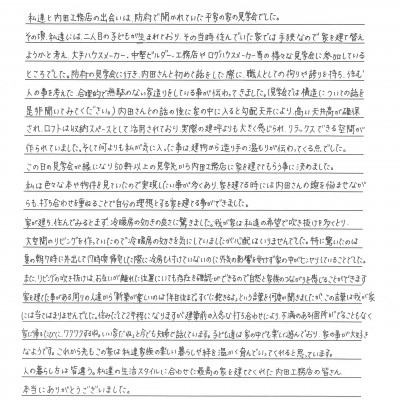 私達と内田工務店の出会いは、防府で開かれていた平家の家の見学会でした。
その頃、私達には二人目の子どもが生まれており、その当時住んでいた家では手狭なので家を建て替え
ようかと考え、大手ハウスメーカー、中堅ビルダー、工務店やログハウスメーカー等の様々な見学会に参加している
ところでした。防府の見学会に行き、内田さんと初めて話をした際に、職人としての拘りや誇りを持ち、住む
人の事を考えた合理的で無駄のない家造りをしている事が伝ってきました。(見学会では構造についての話を
是非聞いてみてください。)内田さんとの話の後に家の中に入ると勾配天井により、高い天井高が確保
され、ロフトは収納スペースとして活用されており、実際の建坪よりも大きく感じられ、リラックスできる空間が
作られていました。そして何よりも私が気に入った事は建物から造り手の温もりが伝わってくる点でした。
この日の見学会が縁になり50軒以上の見学先から内田工務店に家を建ててもらう事に決めました。
私は色々な本や物件を見ていたので実現したい事が多くあり、家を建てる時には内田さんの頭を悩ませなが
らも、打ち合わせを重ねることで自分の理想とする家を建てる事ができました。
家が建ち、住んでみるとまず、冷暖房の効きの良さに驚きました。我が家は私達の希望で吹き抜けを多くとり、
大空間のリビングを作っていたので冷暖房の効きを気にしていましたが心配はいりませんでした。特に驚いたのは
夏の朝7時に外出して17時頃帰宅した際に冷房も付けていないのに外気の影響を受けず家の中がヒンヤリしていることでした。
また、リビングの吹き抜けは、お互いが離れた位置にいても存在を確認ができるので自然と家族のつながりを感じることができます
家を建てた事がある周りの人達から「新築が楽しいのは半年位まで。すぐに飽きるよ。」という言葉を何度か聞きましたが、この言葉は我が家
には当てはまりませんでした。住みだして2年程になりますが、建築前の入念な打ち合わせにより、不満のある箇所がでることもなく
家に帰るたびに、ワクワクするね。いい家だね。と今でも夫婦で話しています。子ども達は家の中でも楽しく遊んでおり、家の事が大好き
なようです。これから先もこの家は私達家族の楽しい暮らしや絆を温かく育んでいってくれると思っています。
人の暮らし方は皆違う。私達の生活スタイルに合わせた最高の家を建てくれた内田工務店の皆さん
本当にありがとうございました。